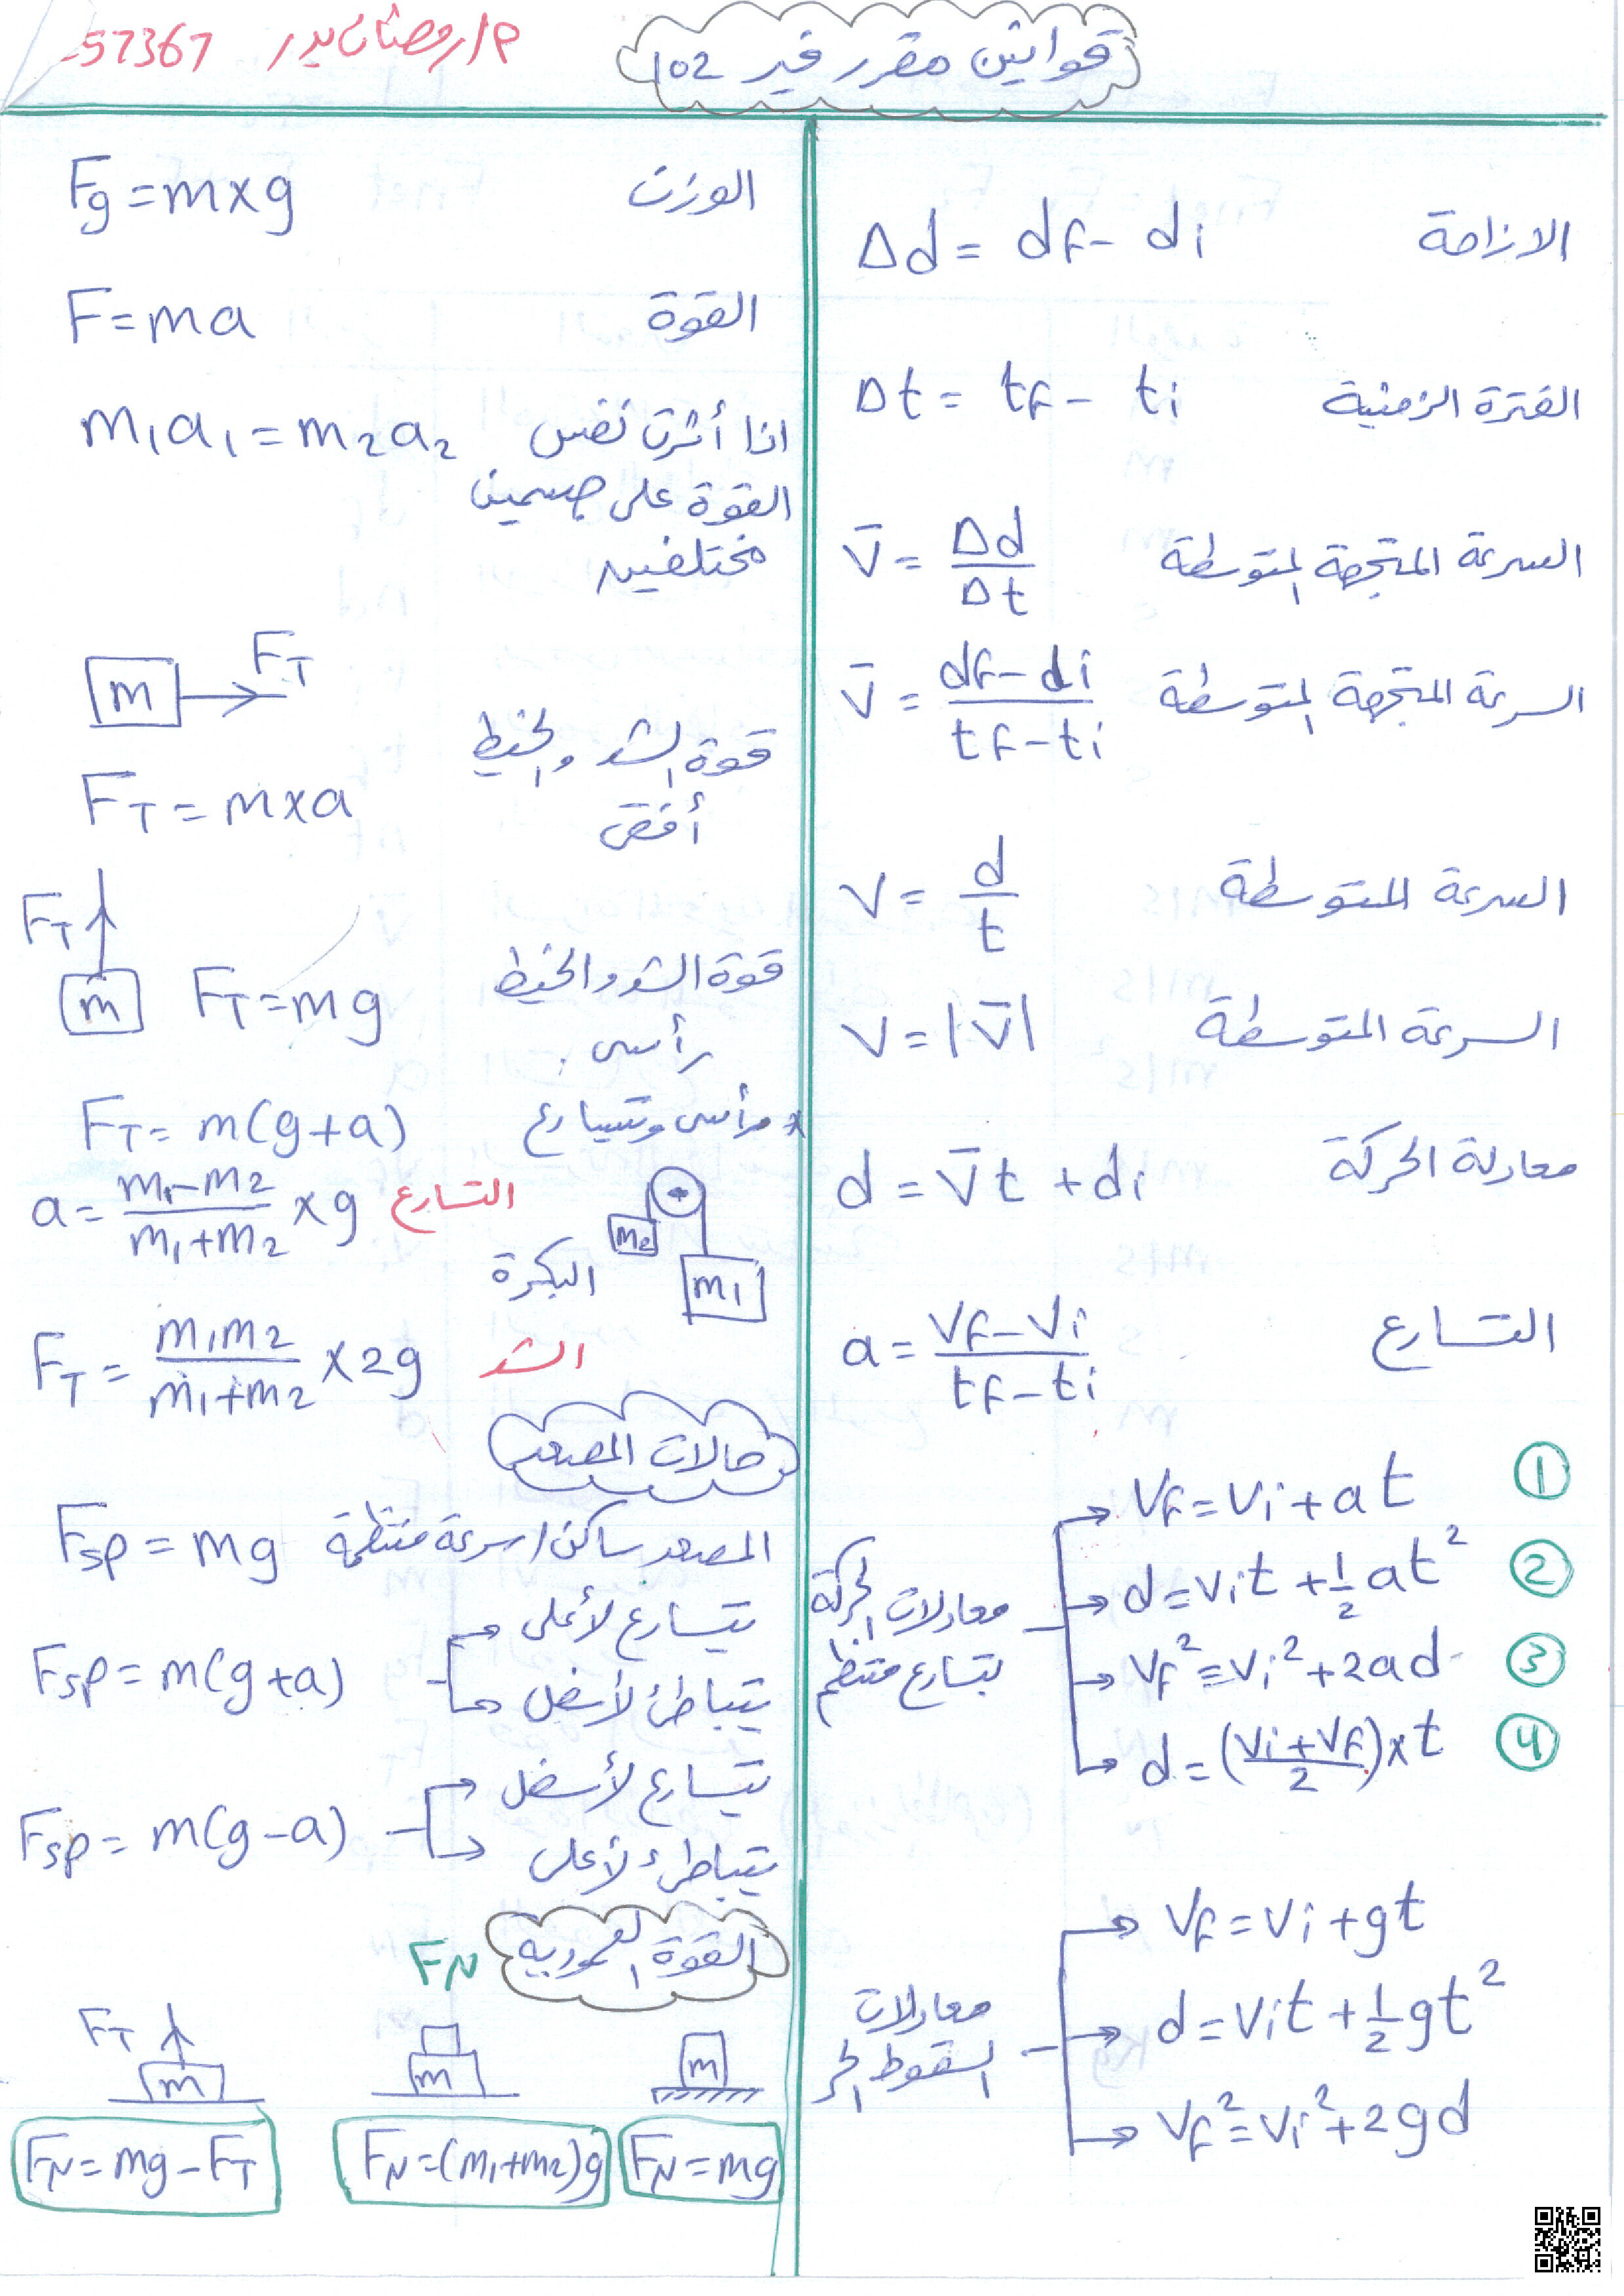 قوانين مقرر فيز 102
م/رمضان بدر 57367
الازاحة Δd = df - di
الفترة الزمنية Δt = tf - ti
السرعة المتجهة المتوسطة v̄ = Δd/Δt
السرعة المتجهة المتوسطة v̄ = (df - di)/(tf - ti)
السرعة المتوسطة v = d/t
السرعة المتوسطة v = |v̄|
معادلة الحركة d = v̄t + di
التسارع a = (vf - vi)/(tf - ti)
معادلات الحركة
بتسارع منتظم
① vf = vi + at
② d = vit + ½at²
③ vf² = vi² + 2ad
④ d = ((vi + vf)/2) × t
معادلات
السقوط الحر
vf = vi + gt
d = vit + ½gt²
vf² = vi² + 2gd
الوزن Fg = m×g
القوة F = ma
اذا أثرت نفس m₁a₁ = m₂a₂
القوة على جسمين
مختلفين
m FT
قوة الشد والخيط
أفقى FT = m×a
FT
m
قوة الشد والخيط FT = mg
رأسى
رأسى وتسارع FT = m(g+a)
التسارع a = (m₁ - m₂)/(m₁ + m₂) × g
m2
m1
البكرة
الشد FT = m₁m₂/(m₁ + m₂) × 2g
حالات المصعد
المصعد ساكن / سرعة منتظمة Fsp = mg
يتسارع لأعلى
يتباطئ لأسفل
Fsp = m(g+a)
يتسارع لأسفل
يتباطئ لأعلى
Fsp = m(g-a)
القوة العمودية FN
m
FN = mg
m
FN = (m₁+m₂)g
FT
m
FN = mg - FT